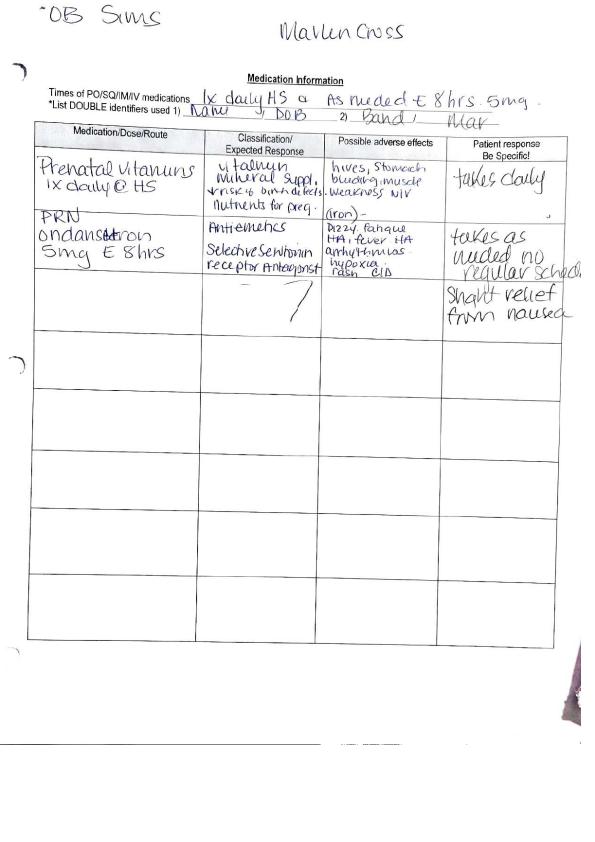 OB Sims
Marlen Cross
Medication Information
Times of PO/SQ/IM/IV medications 1x daily HS a As needed E 8 hrs. 5mg.
*List DOUBLE identifiers used 1) Name, DOB 2) Band, Mar
Medication/Dose/Route
Classification/
Expected Response
Possible adverse effects
Patient response
Be Specific!
Prenatal vitamins
1x daily @ HS
vitamin
Mineral Suppl.
↓ risk of birth defects.
nutrients for preg.
hives, Stomach
bleeding, muscle
weakness N/V
(iron) -
takes daily
PRN
ondansetron
5mg E 8hrs
Antiemetics
Selective Serotonin
receptor Antagonist
Dizzy, fatigue
HA, fever HA
arrhythmias
hypoxia
rash C/D
takes as
needed no
regular sched.
Slight relief
from nausea